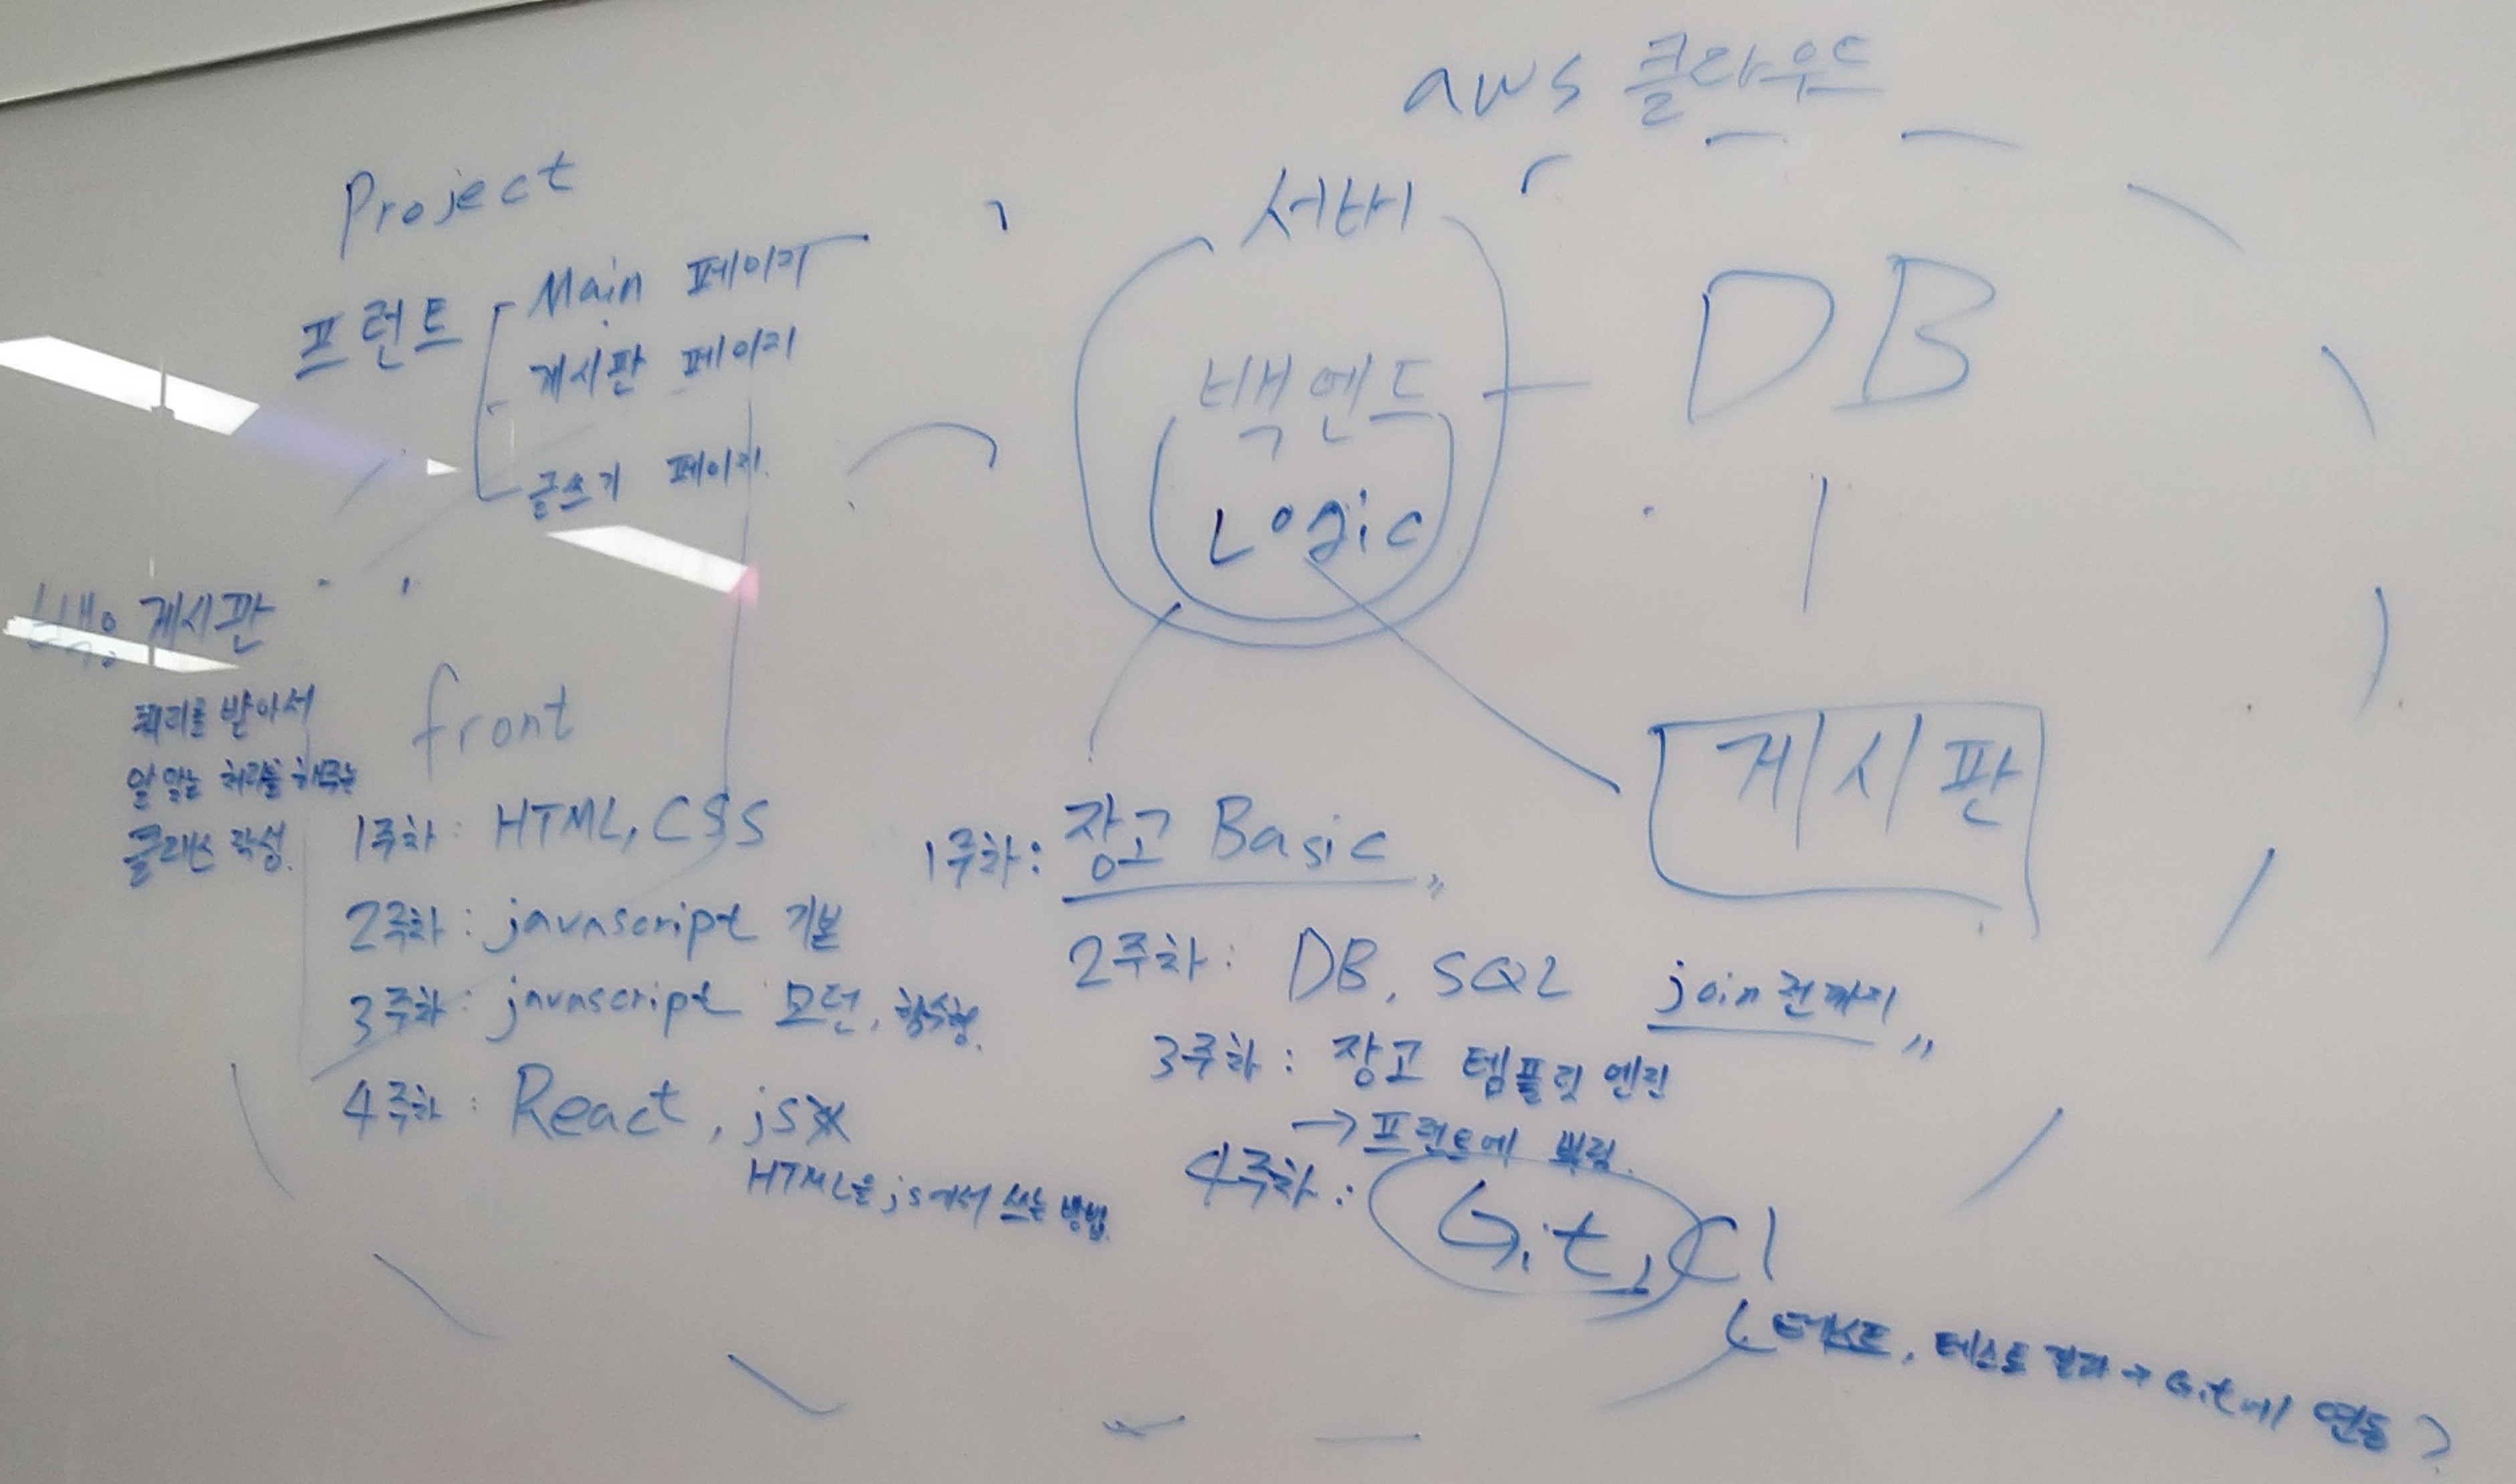 aws 클라우드
Project
프런트
Main 페이지
게시판 페이지
글쓰기 페이지
서버
백엔드
Logic
DB
게시판
게시판
쿼리를 받아서
알맞는 처리를 해주는
클래스 작성.
front
1주차: HTML, CSS
2주차: javascript 기본
3주차: javascript 모던, 함수형.
4주차: React, jsx
HTML을 js에서 쓰는 방법.
1주차: 장고 Basic
2주차: DB, SQL join 전까지
3주차: 장고 템플릿 엔진
→ 프런트에 뿌림.
4주차: Git, CI
(테스트, 테스트 결과 → Git에 연동)